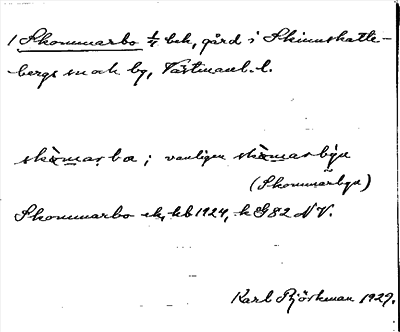 1 Skommarbo 1/4 bek, gård i Skinnskatte-
bergs sn ock by, Västmanl. l.
skòmarba ; vanligen skòmarbya
(Skommarbya)
Skommarbo ek, kb 1924, k G82 NV.
Karl Björkman 1927.